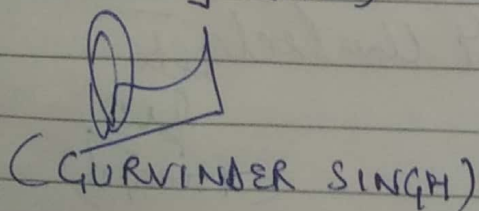 (GURVINDER SINGH)